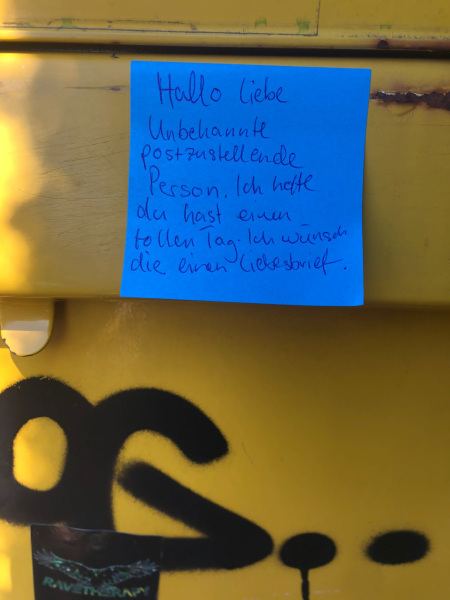 Hallo liebe
Unbekannte
postzustellende
Person. Ich hoffe
du hast einen
tollen Tag. Ich wünsch
die einen Liebesbrief.
RAVETHERAPY